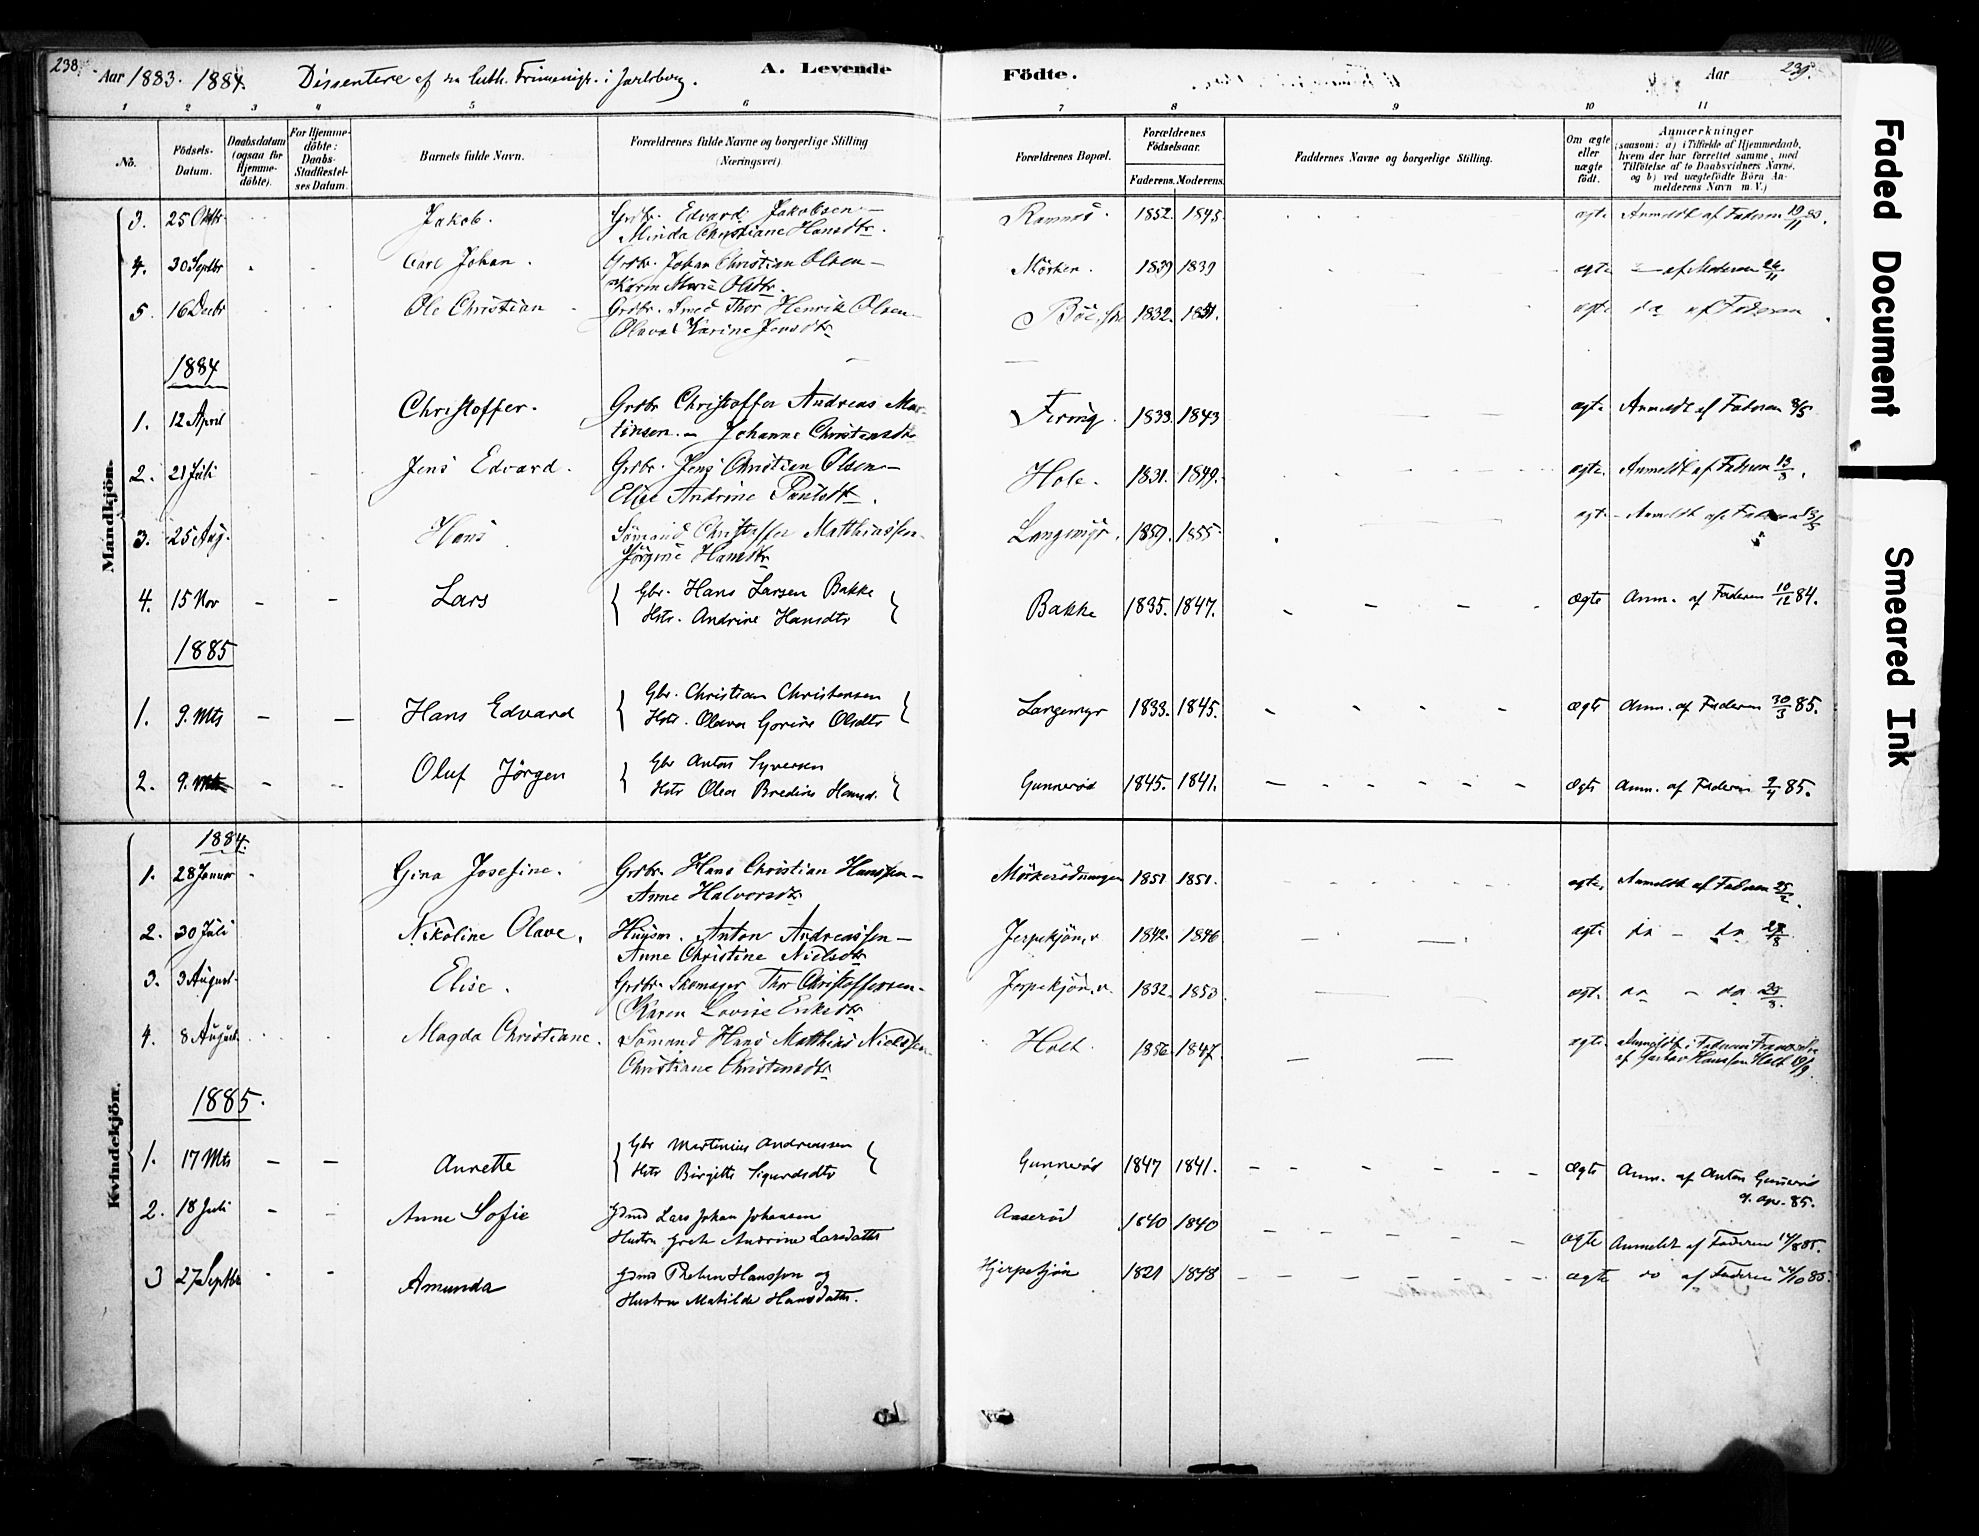 238.
Aar 1883. 1884. Dissentere af en luth. Frimenigh. i Jarlsberg.
A. Levende Födte.
Aar 239.
1 2 3 4 5 6 7 8 9 10 11
No.
Födsels-Datum.
Daabsdatum (ogsaa for Hjemme-döbte).
For Hjemme-döbte: Daabs-Stadfæstel-ses Datum.
Barnets fulde Navn.
Forældrenes fulde Navne og borgerlige Stilling (Næringsvei)
Forældrenes Bopæl.
Forældrenes Födselsaar.
Faderens. Moderens.
Faddernes Navne og borgerlige Stilling.
Om ægte eller uægte födt.
Anmærkninger (saasom: a) i Tilfælde af Hjemmedaab, hvem der har forrettet samme, med Tilföielse af to Daabsvidners Navne, og b) ved uægtefödte Börn An-melderens Navn m. V.)
Mandkjön.
3. 25 Oktbr Jakob. Grdbr. Edvard Jakobsen – 1852. 1845 ægte Anmeldt af Faderen 19/11 83.
Minda Christiane Hansdtr.
4. 30 Septbr Carl Johan. Grdbr. Johan Christian Olsen – Mörken. 1839 1839 ægte – af Moderen 26/11
Karen Marie Olsdtr.
5. 16 Decbr Ole Christian Grdbr. Smed Thor Henrik Olsen – 1832. 1851. ægte do af Faderen
Olava Karine Jensdtr
1884
1. 12 April Christoffer. Grdbr Christoffer Andreas Mar- 1833 1843 ægte Anmeldt af Faderen 8/5
tinsen. – Johanne Christensdtr
2. 21 Juli Jens Edvard. Grdbr. Jens Christian Olsen – Hole. 1831. 1849. ægte. Anmeldt af Faderen 13/8.
Elise Andrine Paulsdtr.
3. 25 Aug. Hans Sömand Christoffer Matthiassen – Langemyr. 1859. 1855. ægte – Anmeldt af Faderen
Jörgine Hansdtr
4. 15 Nov – – Lars Gbr. Hans Larsen Bakke Bakke 1835. 1847. ægte Anm. af Faderen 10/12 84.
Hstr. Andrine Hansdtr
1885
1. 9. Mts – – Hans Edvard Gbr. Christian Christensen Langemyr 1833. 1845. ægte Anm. af Faderen 30/3 85.
Hstr. Olava Gorine Olsdtr
2. 9. Mts – – Oluf Jörgen Gbr Anton Syversen Gunneröd 1845. 1841. ægte Anm. af Faderen 2/4 85.
Hstr Olea Bredine Hansd.
Kvindekjön.
1884.
1. 28 Januar Gina Josefine. Grdbr. Hans Christian Hanssen – 1851 1851. ægte. Anmeldt af Faderen 25/2.
Anne Halvorsdtr
2. 30 Juli Nikoline Olave. Husm. Anton Andreassen – 1842. 1846 ægte do – do 27/8
Anne Christine Nielsdtr
3. 3 August Elise. Grdbr. Skomager Thor Christoffersen – 1832. 1853 ægte. do – do 29/8.
Karen Lovise Eriksdtr
4. 8 August. Magda Christiane. Sömand Hans Matthias Nielssen Holt. 1856. 1847. ægte. Anmeldt i Faderens Fravær
Christiane Christensdtr af Gustav Hanssen Holt 19/9
1885.
1. 17 Mts – – Anrette Gbr Martinius Andreassen Gunneröd 1847 1841. ægte Anm. af Anton Gunneröd
Hstr Birgitte Sigurdsdtr 9. apr. 85.
2. 18 Juli – – Anne Sofie Gbmd Lars Johan Johansen Aaseröd 1840 1840 ægte Anmeldt af Faderen 14/8 85.
Hustru Grete Andrine Larsdatter
3 27 Septbr – Amunda Gbmd Preben Hanssen og Hjerpekjön 1821 1848 ægte do af Faderen 24/10 85.
Hustru Matilde Hansdatter.
Faded Document
Smeared Ink